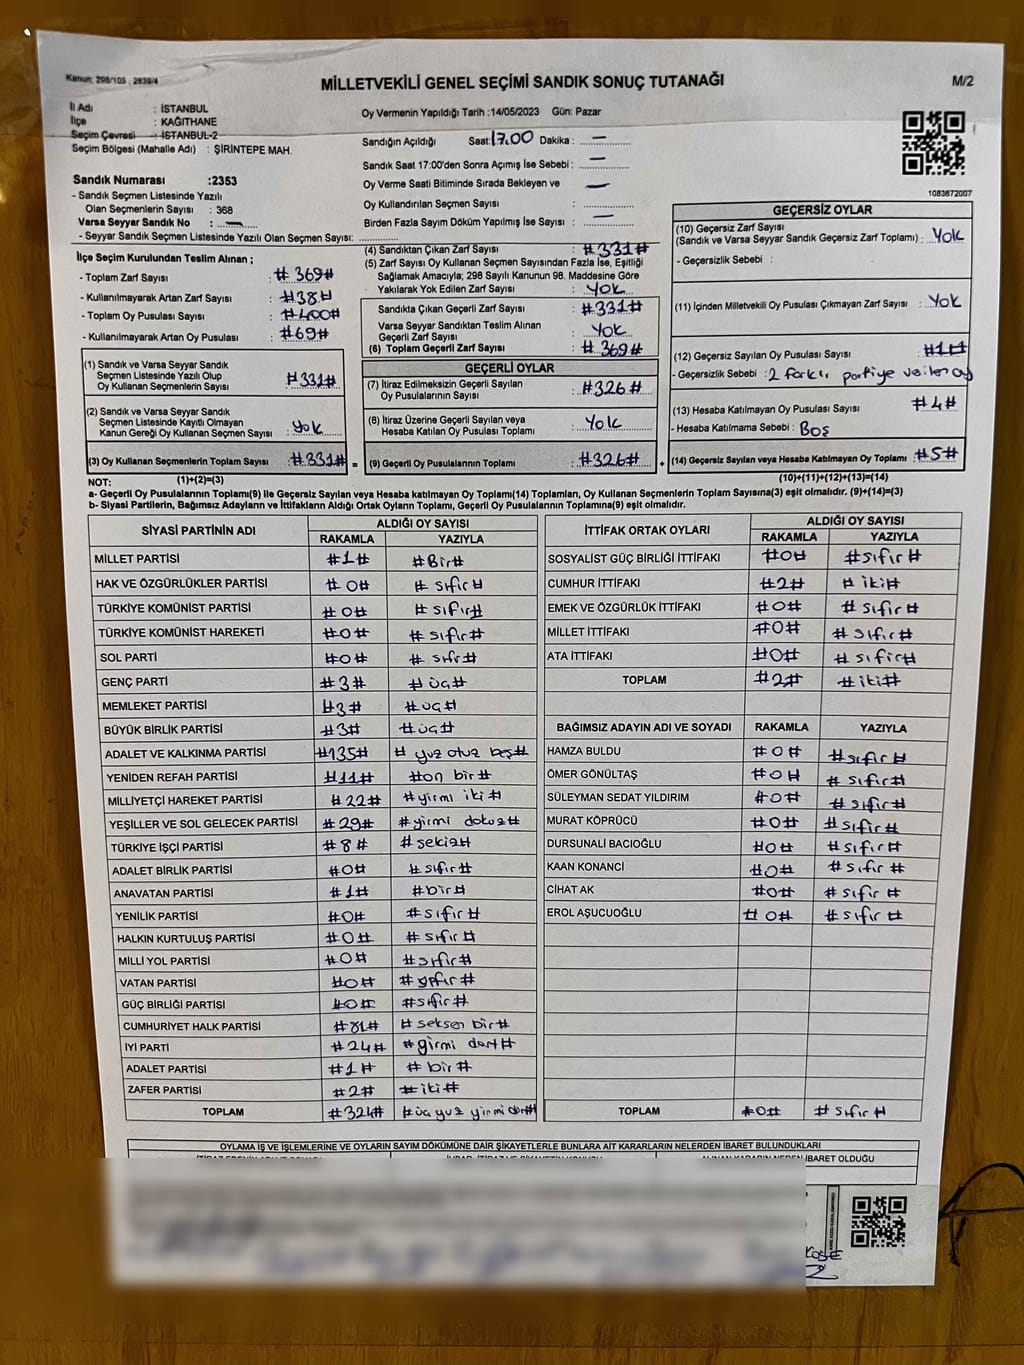 Kanun: 298/105 , 2839/4
MİLLETVEKİLİ GENEL SEÇİMİ SANDIK SONUÇ TUTANAĞI
M/2
İl Adı : İSTANBUL
İlçe : KAĞITHANE
Seçim Çevresi : İSTANBUL-2
Seçim Bölgesi (Mahalle Adı) : ŞİRİNTEPE MAH.
Oy Vermenin Yapıldığı Tarih :14/05/2023 Gün: Pazar
Sandığın Açıldığı Saat: 17.00 Dakika : —
Sandık Saat 17:00'den Sonra Açımış İse Sebebi : —
Oy Verme Saati Bitiminde Sırada Bekleyen ve : —
Oy Kullandırılan Seçmen Sayısı
Birden Fazla Sayım Döküm Yapılmış İse Sayısı : —
1083672007
Sandık Numarası :2353
- Sandık Seçmen Listesinde Yazılı
Olan Seçmenlerin Sayısı : 368
Varsa Seyyar Sandık No : —
- Seyyar Sandık Seçmen Listesinde Yazılı Olan Seçmen Sayısı:
İlçe Seçim Kurulundan Teslim Alınan ;
- Toplam Zarf Sayısı : # 369#
- Kullanılmayarak Artan Zarf Sayısı : #38#
- Toplam Oy Pusulası Sayısı : #400#
- Kullanılmayarak Artan Oy Pusulası : #69#
(1) Sandık ve Varsa Seyyar Sandık
Seçmen Listesinde Yazılı Olup
Oy Kullanan Seçmenlerin Sayısı : #331#
(2) Sandık ve Varsa Seyyar Sandık
Seçmen Listesinde Kayıtlı Olmayan
Kanun Gereği Oy Kullanan Seçmen Sayısı : Yok
(3) Oy Kullanan Seçmenlerin Toplam Sayısı : #331# =
(1)+(2)=(3)
(4) Sandıktan Çıkan Zarf Sayısı : #331#
(5) Zarf Sayısı Oy Kullanan Seçmen Sayısından Fazla İse, Eşitliği
Sağlamak Amacıyla; 298 Sayılı Kanunun 98. Maddesine Göre
Yakılarak Yok Edilen Zarf Sayısı : Yok
Sandıkta Çıkan Geçerli Zarf Sayısı : #331#
Varsa Seyyar Sandıktan Teslim Alınan
Geçerli Zarf Sayısı : Yok
(6) Toplam Geçerli Zarf Sayısı : # 369#
GEÇERLİ OYLAR
(7) İtiraz Edilmeksizin Geçerli Sayılan
Oy Pusulalarının Sayısı : #326#
(8) İtiraz Üzerine Geçerli Sayılan veya
Hesaba Katılan Oy Pusulası Toplamı : Yok
(9) Geçerli Oy Pusulalarının Toplamı : #326# +
GEÇERSİZ OYLAR
(10) Geçersiz Zarf Sayısı
(Sandık ve Varsa Seyyar Sandık Geçersiz Zarf Toplamı) : Yok
- Geçersizlik Sebebi :
(11) İçinden Milletvekili Oy Pusulası Çıkmayan Zarf Sayısı : Yok
(12) Geçersiz Sayılan Oy Pusulası Sayısı : #1#
- Geçersizlik Sebebi : 2 farklı partiye verilen oy
(13) Hesaba Katılmayan Oy Pusulası Sayısı : #4#
- Hesaba Katılmama Sebebi : Boş
(14) Geçersiz Sayılan veya Hesaba Katılmayan Oy Toplamı : #5#
(10)+(11)+(12)+(13)=(14)
NOT:
a- Geçerli Oy Pusulalarının Toplamı(9) ile Geçersiz Sayılan veya Hesaba katılmayan Oy Toplamı(14) Toplamları, Oy Kullanan Seçmenlerin Toplam Sayısına(3) eşit olmalıdır. (9)+(14)=(3)
b- Siyasi Partilerin, Bağımsız Adayların ve İttifakların Aldığı Ortak Oyların Toplamı, Geçerli Oy Pusulalarının Toplamına(9) eşit olmalıdır.
SİYASİ PARTİNİN ADI ALDIĞI OY SAYISI
RAKAMLA YAZIYLA
MİLLET PARTİSİ #1# #Bir#
HAK VE ÖZGÜRLÜKLER PARTİSİ # 0# # sıfır#
TÜRKİYE KOMÜNİST PARTİSİ #0# # sıfır#
TÜRKİYE KOMÜNİST HAREKETİ #0# # sıfır#
SOL PARTİ #0# # sıfır#
GENÇ PARTİ #3# # üç#
MEMLEKET PARTİSİ #3# #üç#
BÜYÜK BİRLİK PARTİSİ #3# #üç#
ADALET VE KALKINMA PARTİSİ #135# # yuz otuz beş#
YENİDEN REFAH PARTİSİ #11# #on bir#
MİLLİYETÇİ HAREKET PARTİSİ #22# #yirmi iki#
YEŞİLLER VE SOL GELECEK PARTİSİ #29# #yirmi dokuz#
TÜRKİYE İŞÇİ PARTİSİ #8# #sekiz#
ADALET BİRLİK PARTİSİ #0# #sıfır#
ANAVATAN PARTİSİ #1# #bir#
YENİLİK PARTİSİ #0# #sıfır#
HALKIN KURTULUŞ PARTİSİ #0# # sıfır#
MİLLİ YOL PARTİSİ #0# #sıfır#
VATAN PARTİSİ #0#
GÜÇ BİRLİĞİ PARTİSİ #0# #sıfır#
CUMHURİYET HALK PARTİSİ #81# # seksen bir#
İYİ PARTİ #24# #girmi dört#
ADALET PARTİSİ #1# # bir#
ZAFER PARTİSİ #2# #iki#
TOPLAM #324# #üç yuz yirmi dört#
İTTİFAK ORTAK OYLARI ALDIĞI OY SAYISI
RAKAMLA YAZIYLA
SOSYALİST GÜÇ BİRLİĞİ İTTİFAKI #0# #sıfır#
CUMHUR İTTİFAKI #2# # iki#
EMEK VE ÖZGÜRLÜK İTTİFAKI #0# # sıfır#
MİLLET İTTİFAKI #0# # sıfır#
ATA İTTİFAKI #0# # sıfır#
TOPLAM #2# #iki#
BAĞIMSIZ ADAYIN ADI VE SOYADI RAKAMLA YAZIYLA
HAMZA BULDU #0# #sıfır#
ÖMER GÖNÜLTAŞ #0# # sıfır#
SÜLEYMAN SEDAT YILDIRIM #0# # sıfır#
MURAT KÖPRÜCÜ #0# #sıfır#
DURSUNALİ BACIOĞLU #0# # sıfır#
KAAN KONANCİ #0# # sıfır #
CİHAT AK #0# # sıfır #
EROL AŞUCUOĞLU # 0# # sıfır #
TOPLAM #0# # sıfır#
OYLAMA İŞ VE İŞLEMLERİNE VE OYLARIN SAYIM DÖKÜMÜNE DAİR ŞİKAYETLERLE BUNLARA AİT KARARLARIN NELERDEN İBARET BULUNDUKLARI
ALINAN KARARIN NEDEN İBARET OLDUĞU
KÖSE
2